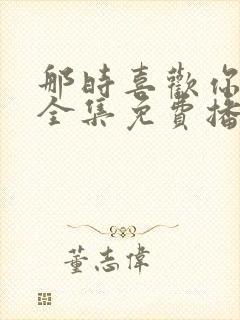 那時喜歡你
全集免費播
董志偉